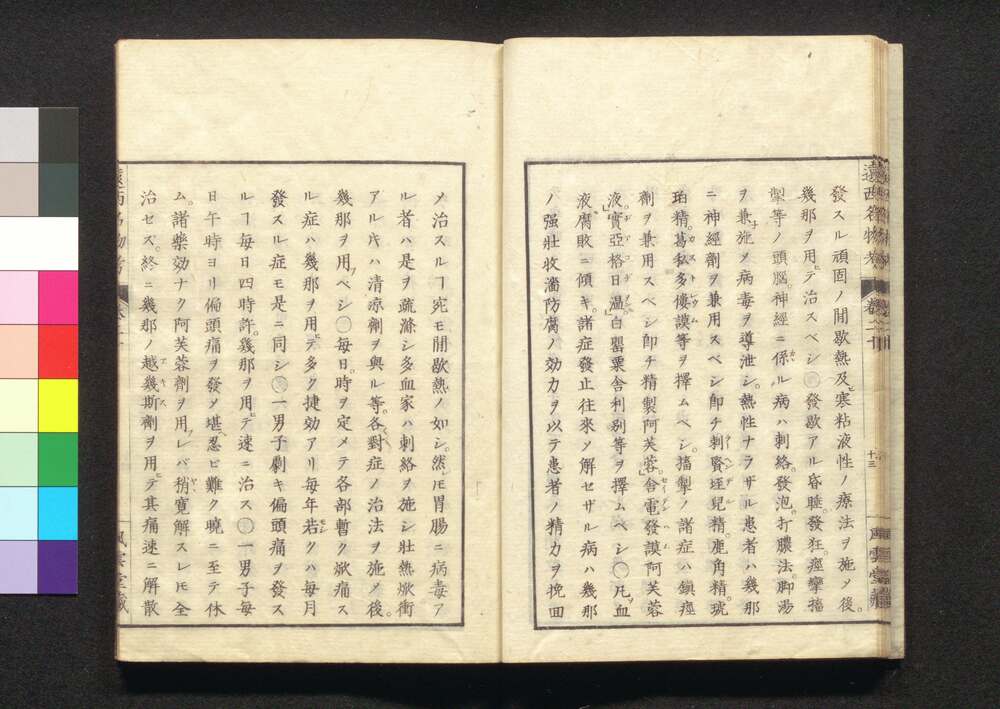 發スル頑固ノ間歇熱及ヒ寒粘液性ノ療法ヲ施メ後。
幾那ヲ用ヒテ治スベシ○發歇アル昏睡。發狂。痙攣搐
掣等ノ頭腦。神經ニ係ル病ハ刺絡。發泡。打膿法。脚湯
ヲ兼施メ病毒ヲ導泄シ。熱性ナラザル患者ハ幾那
ニ神經劑ヲ兼用スベシ卽チ刺賢垤兒精。鹿角精。琥
珀精。葛私多僂謨等ヲ擇ムベシ。搐掣ノ諸症ハ鎮痙
劑ヲ兼用スベシ卽チ精製阿芙蓉。舎電發謨阿芙蓉
液。實亞格日温。白罌粟舎利別等ヲ擇ムベシ○凡血
液腐敗ニ傾キ。諸症發止往來メ解セザル病ハ幾那
ノ强壯收濇防腐ノ効力ヲ以テ患者ノ精力ヲ挽回
遠西名物考 卷二十 十三 風雲堂藏
メ治スルヿ宛モ間歇熱ノ如シ。然ㇾ𪜈胃腸ニ病毒ア
ル者ハ是ヲ疏滌シ多血家ハ刺絡ヲ施シ壯熱焮衝
アル𪜈ハ清凉劑ヲ與ル等。各對症ノ治法ヲ施メ後。
幾那ヲ用フベシ○毎日。時ヲ定メテ各部暫ク焮痛ス
ル症ハ幾那ヲ用ヒテ多ク捷効アリ毎年若クハ毎月
發スル症モ是ニ同シ○一男子劇キ偏頭痛ヲ發ス
ルヿ毎日四時許。幾那ヲ用ヒテ速ニ治ス○一男子毎
日午時ヨリ偏頭痛ヲ發メ堪ヘ忍ビ難ク曉ニ至テ休
ム。諸藥効ナク阿芙蓉劑ヲ用フレバ稍寬解スレモ全
治セズ。終ニ幾那ノ越幾斯劑ヲ用ヒテ其痛速ニ解散